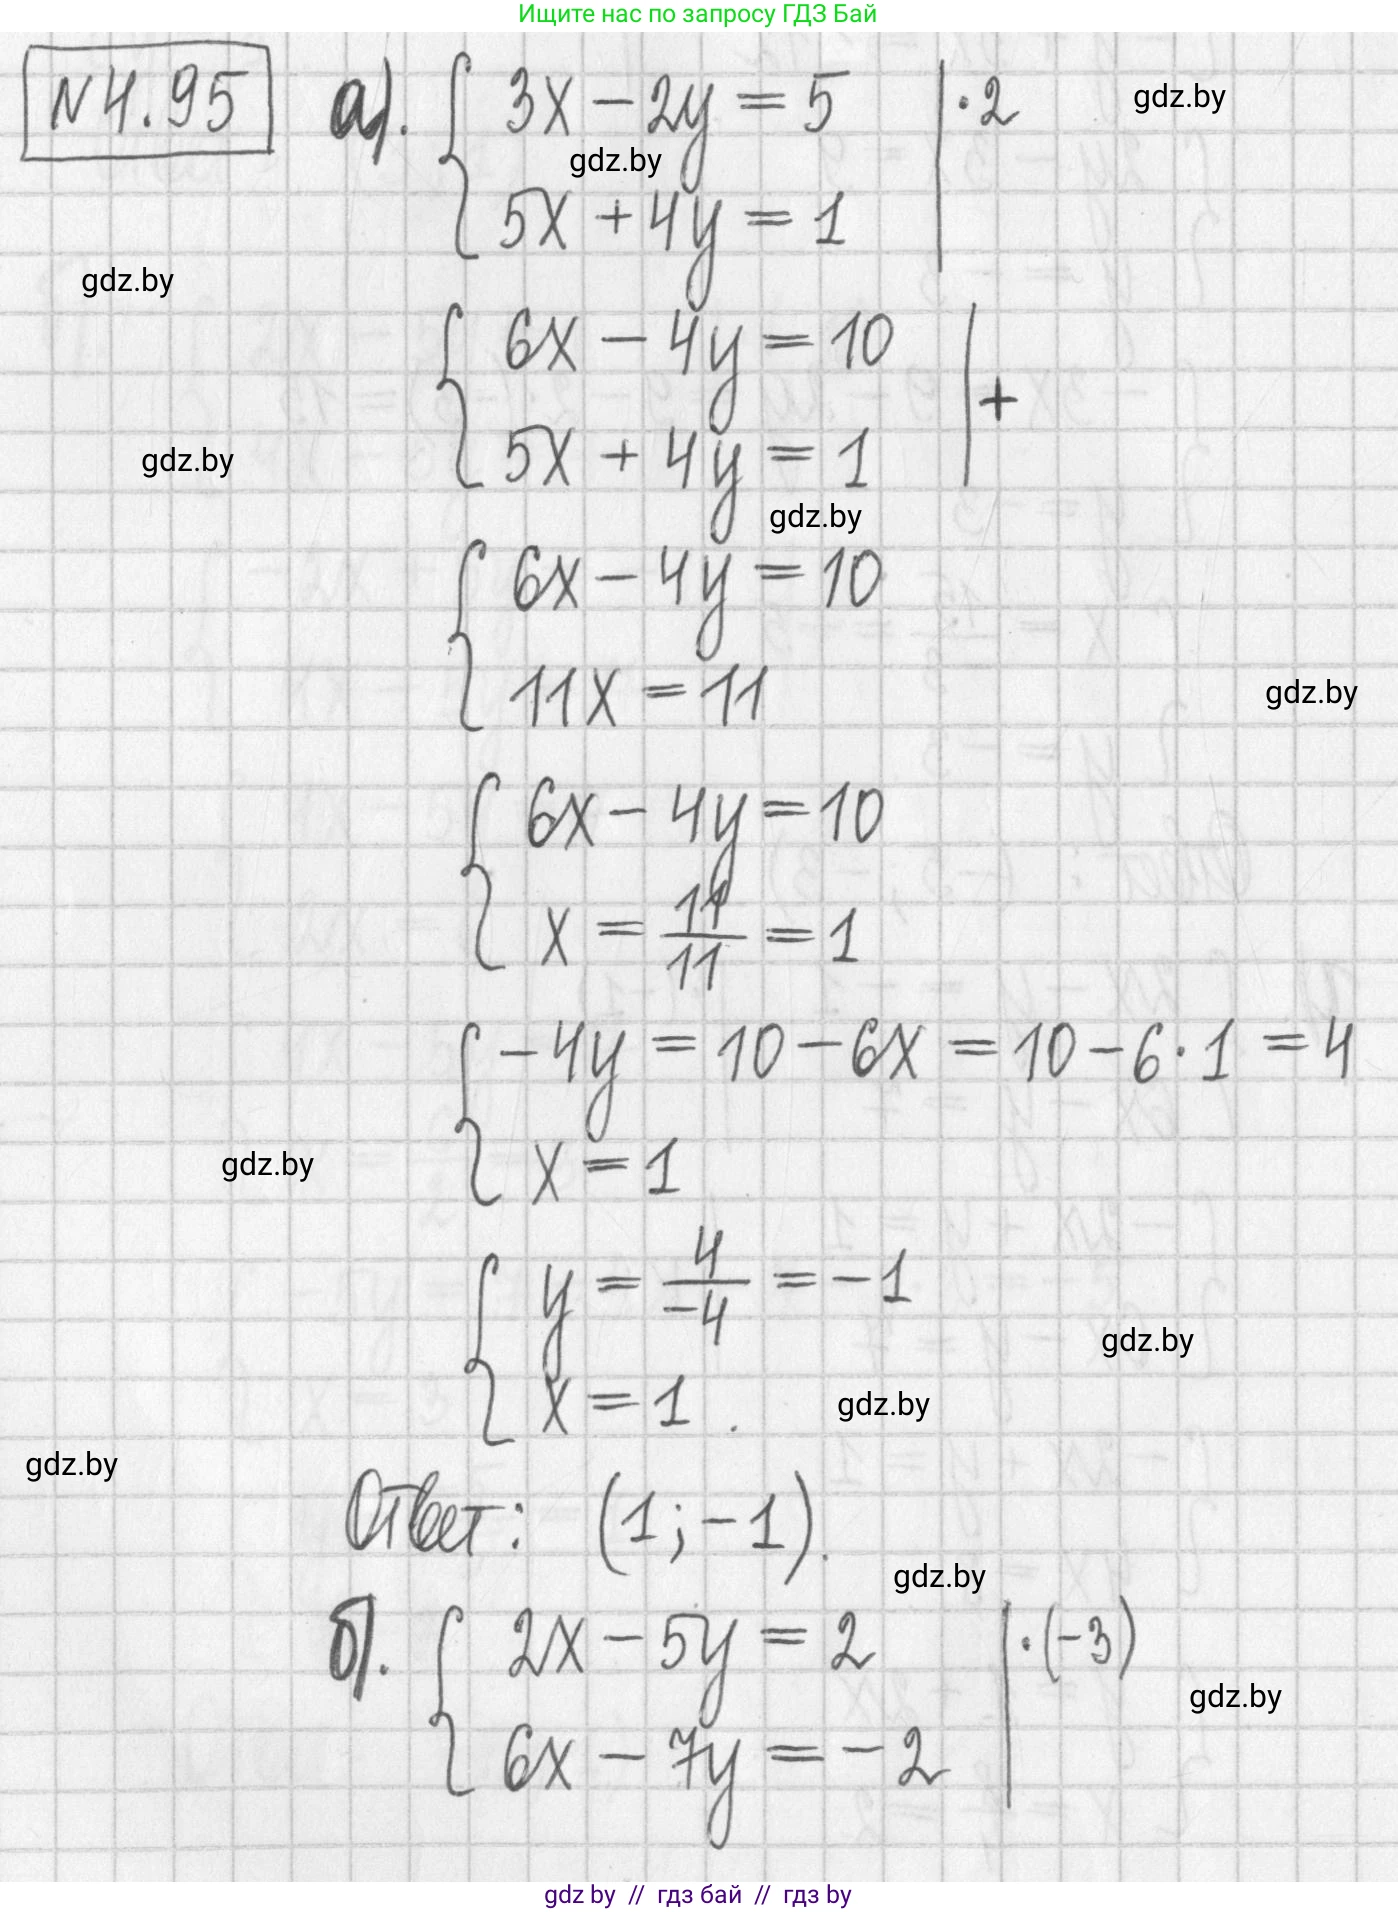 Ищите нас по запросу ГДЗ Бай
N 4.95 а). { 3x − 2y = 5 | · 2
gdz.by
gdz.by
5x + 4y = 1
gdz.by
{ 6x − 4y = 10 | +
5x + 4y = 1
gdz.by
gdz.by
{ 6x − 4y = 10
11x = 11
gdz.by
{ 6x − 4y = 10
x = 11/11 = 1
{ −4y = 10 − 6x = 10 − 6 · 1 = 4
x = 1
gdz.by
{ y = 4/−4 = −1
gdz.by
x = 1.
gdz.by
gdz.by
Ответ: (1; −1).
gdz.by
б). { 2x − 5y = 2 | · (−3)
gdz.by
6x − 7y = −2
gdz by // гдз бай // гдз by